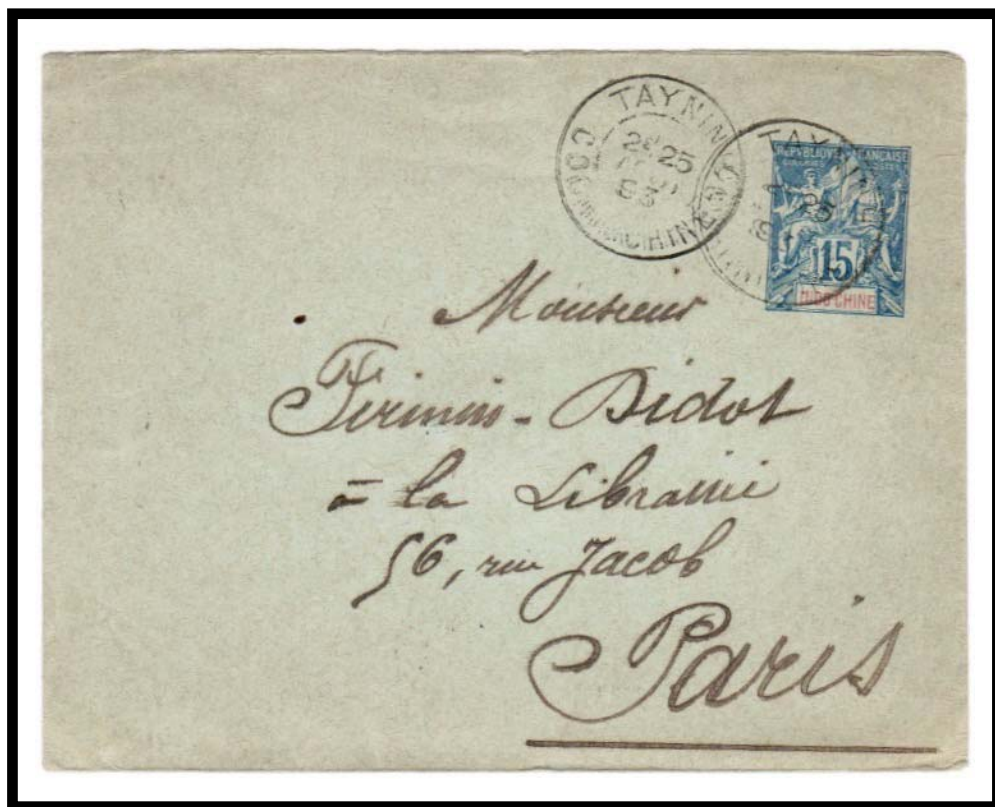 TAYNIN
25
COCHINCHINE
TAYNIN
25
REPUBLIQUE FRANÇAISE
COLONIES POSTES
15
INDO-CHINE
Monsieur
Firmin-Didot
à la Librairie
56, rue Jacob
Paris